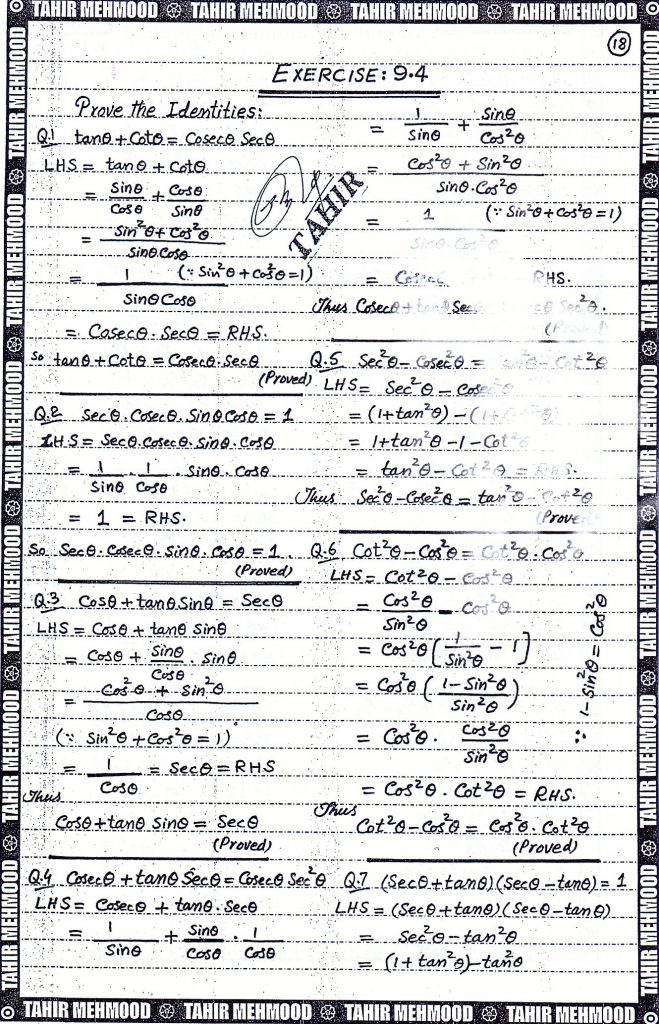 TAHIR MEHMOOD TAHIR MEHMOOD TAHIR MEHMOOD TAHIR MEHMOOD
18
EXERCISE: 9.4
Prove the Identities:
Q.1 tanθ + Cotθ = Cosecθ Secθ
LHS = tanθ + Cotθ
= Sinθ/Cosθ + Cosθ/Sinθ
= Sin²θ + Cos²θ / SinθCosθ
= 1 / SinθCosθ (∵ Sin²θ + Cos²θ = 1)
= Cosecθ. Secθ = RHS.
So tanθ + Cotθ = Cosecθ. Secθ
(Proved)
Q.2 Secθ. Cosecθ. Sinθ Cosθ = 1
LHS = Secθ. Cosecθ. Sinθ. Cosθ
= 1/Sinθ . 1/Cosθ . Sinθ. Cosθ
= 1 = RHS.
So Secθ. Cosecθ. Sinθ. Cosθ = 1.
(Proved)
Q.3 Cosθ + tanθ Sinθ = Secθ
LHS = Cosθ + tanθ Sinθ
= Cosθ + Sinθ/Cosθ . Sinθ
= Cos²θ + Sin²θ / Cosθ
(∵ Sin²θ + Cos²θ = 1)
= 1/Cosθ = Secθ = RHS
Thus
Cosθ + tanθ Sinθ = Secθ
(Proved)
Q.4 Cosecθ + tanθ Secθ = Cosecθ Sec²θ
LHS = Cosecθ + tanθ. Secθ
= 1/Sinθ + Sinθ/Cosθ . 1/Cosθ
= 1/Sinθ + Sinθ/Cos²θ
= Cos²θ + Sin²θ / Sinθ. Cos²θ
TAHIR
= 1 / Sinθ. Cos²θ (∵ Sin²θ + Cos²θ = 1)
= RHS.
Thus Cosecθ + tanθ Sec Sec²θ.
(Proved)
Q.5 Sec²θ - Cosec²θ = tan²θ - Cot²θ
LHS = Sec²θ - Cosec²θ
= (1+tan²θ) - (1+Cot²θ)
= 1+tan²θ - 1 - Cot²θ
= tan²θ - Cot²θ = RHS.
Thus Sec²θ - Cosec²θ = tan²θ - Cot²θ
(Proved)
Q.6 Cot²θ - Cos²θ = Cot²θ. Cos²θ
LHS = Cot²θ - Cos²θ
= Cos²θ/Sin²θ - Cos²θ
= Cos²θ (1/Sin²θ - 1)
= Cos²θ (1-Sin²θ / Sin²θ)
∵ 1-Sin²θ = Cos²θ
= Cos²θ. Cos²θ/Sin²θ
= Cos²θ. Cot²θ = RHS.
Thus
Cot²θ - Cos²θ = Cos²θ. Cot²θ
(Proved)
Q.7 (Secθ + tanθ)(Secθ - tanθ) = 1
LHS = (Secθ + tanθ)(Secθ - tanθ)
= Sec²θ - tan²θ
= (1+tan²θ) - tan²θ
TAHIR MEHMOOD TAHIR MEHMOOD TAHIR MEHMOOD TAHIR MEHMOOD
TAHIR MEHMOOD TAHIR MEHMOOD TAHIR MEHMOOD TAHIR MEHMOOD TAHIR MEHMOOD TAHIR MEHMOOD
TAHIR MEHMOOD TAHIR MEHMOOD TAHIR MEHMOOD TAHIR MEHMOOD TAHIR MEHMOOD TAHIR MEHMOOD